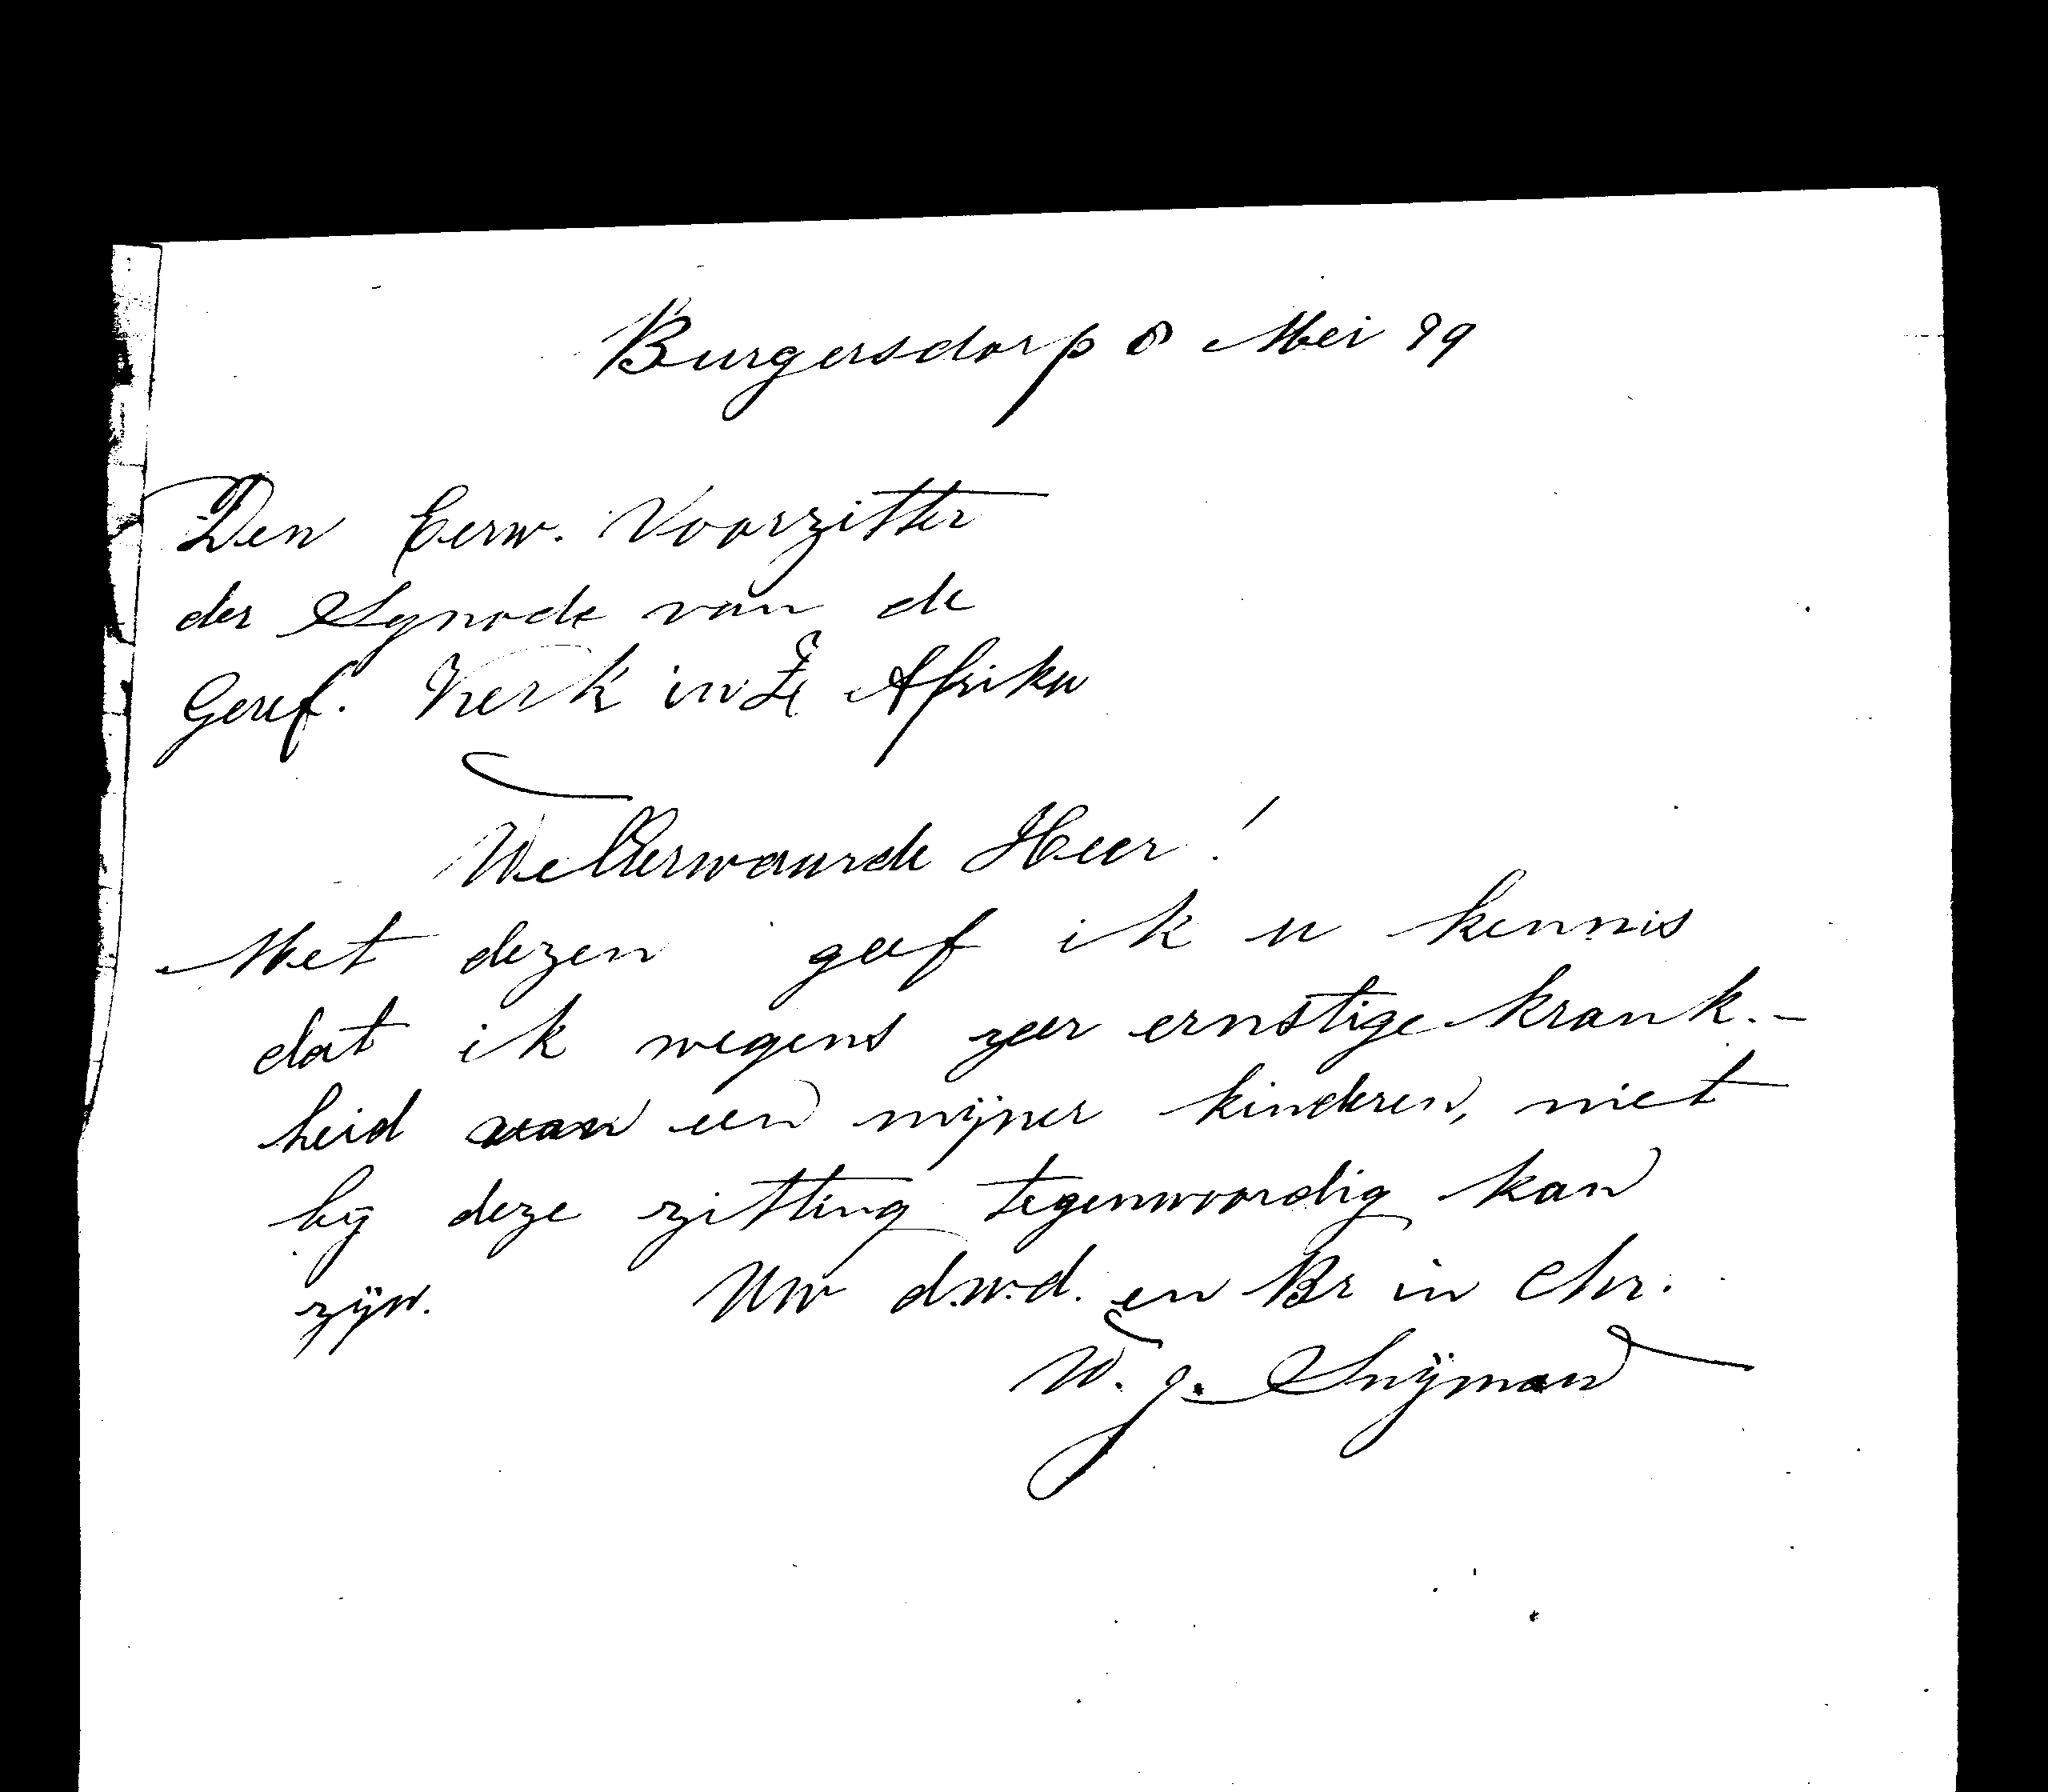 Burgersdorp 8 Mei 99
Den Eerw. Voorzitter
der Synode van de
Geref. Kerk in Afrika
WelEerwaarde Heer!
Met dezen geef ik u kennis
dat ik wegens zeer ernstige krank.-
heid van een mijner kinderen, niet
bij deze zitting tegenwoordig kan
zijn. Uw d.w.d. en Br in Chr.
W. J. Snijman